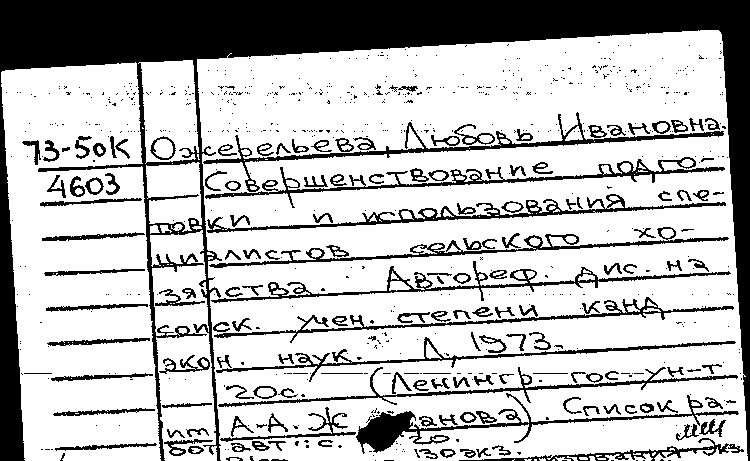 73-5.0К Ожерельева, Любовь Ивановна.
4603 Совершенствование подго-
товки и использования спе-
циалистов сельского хо-
зяйства. Автореф. дис. на
соиск. учен. степени канд
экон. наук. Л., 1973.
20с. (Ленингр. гос. ун-т
им. А.А. Ж анова). Список ра-
бот авт.: с. 20.
130 экз.